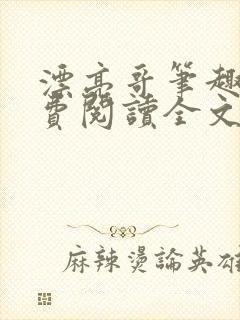 漂亮哥筆趣
費閱讀全文
麻辣燙論英雄